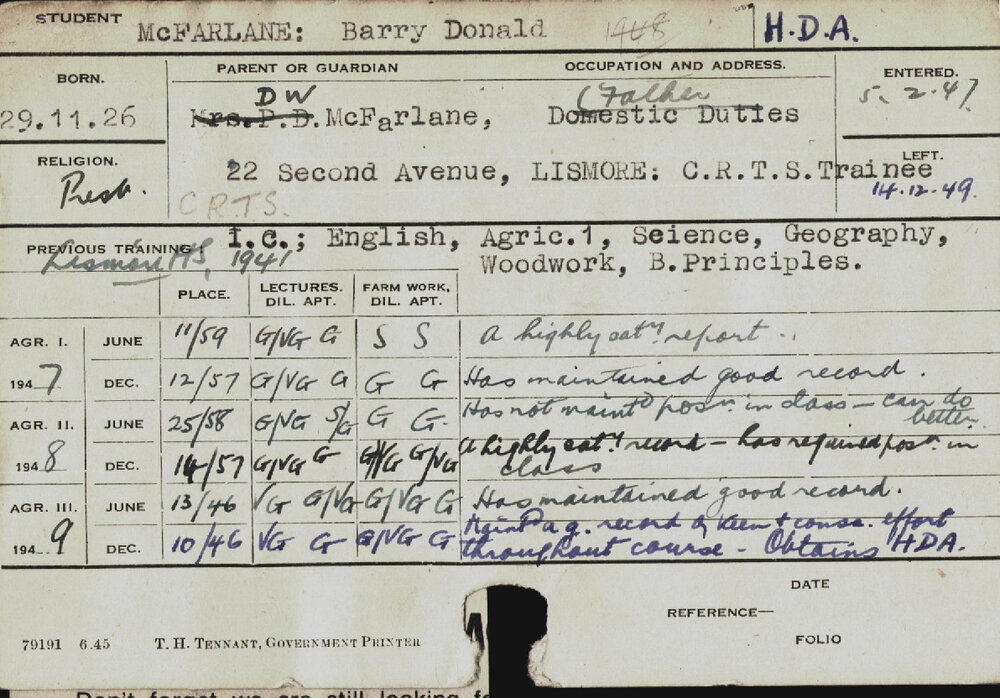 STUDENT McFARLANE: Barry Donald 1948 H.D.A.
BORN. PARENT OR GUARDIAN OCCUPATION AND ADDRESS. ENTERED.
DW (Father 5.2.47
29.11.26 Mrs.P.D.McFarlane, Domestic Duties
RELIGION. LEFT.
Presb. 22 Second Avenue, LISMORE: C.R.T.S.Trainee 14.12.49.
C.R.T.S.
PREVIOUS TRAINING I.C.; English, Agric.1, Seience, Geography,
Lismore HS, 1941 Woodwork, B.Principles.
PLACE. LECTURES. DIL. APT. FARM WORK. DIL. APT.
AGR. I. JUNE 11/59 G/VG G S S A highly saty report.
1947 DEC. 12/57 G/VG G G G Has maintained good record.
AGR. II. JUNE 25/58 G/VG S/G G G. Has not maintd posn in class - can do better.
1948 DEC. 14/57 G/VG G G/VG G/VG A highly saty record - has regained posn in class
AGR. III. JUNE 13/46 VG G/VG G/VG G Has maintained good record.
1949 DEC. 10/46 VG G G/VG G Maintd a g. record of keen + cons. effort
throughout course - Obtains HDA.
DATE
REFERENCE—
FOLIO
79191 6.45 T. H. TENNANT, GOVERNMENT PRINTER
Don't forget we are still looking